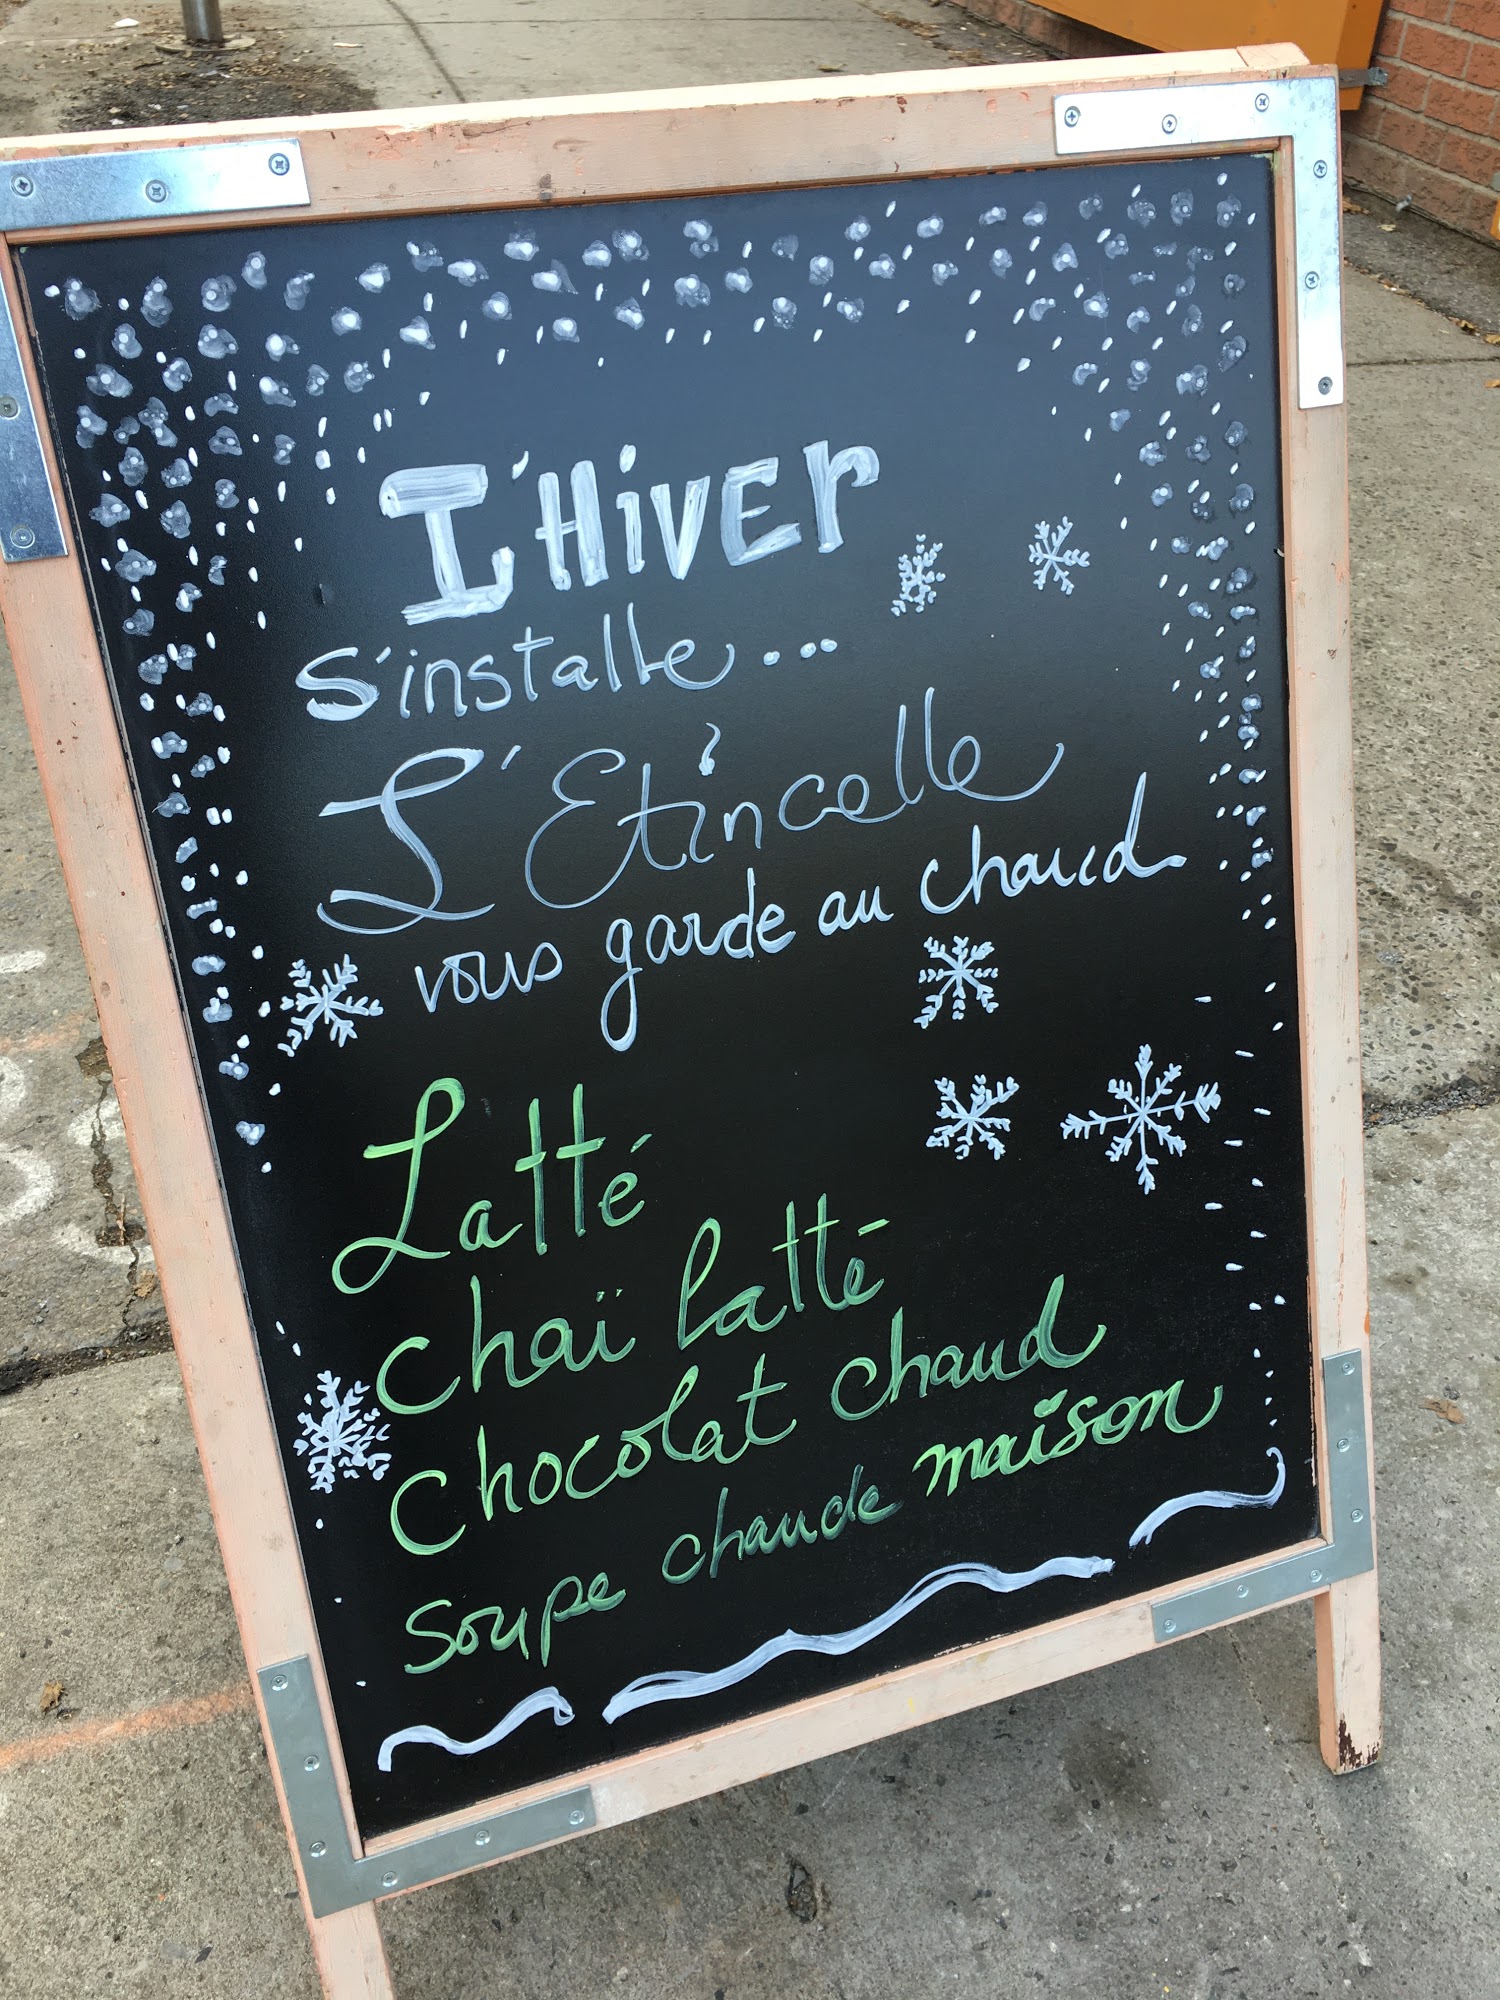 L'HiVEr
s'installe...
L'Etincelle
vous garde au chaud
Latté
chaï latté
chocolat chaud
soupe chaude maison